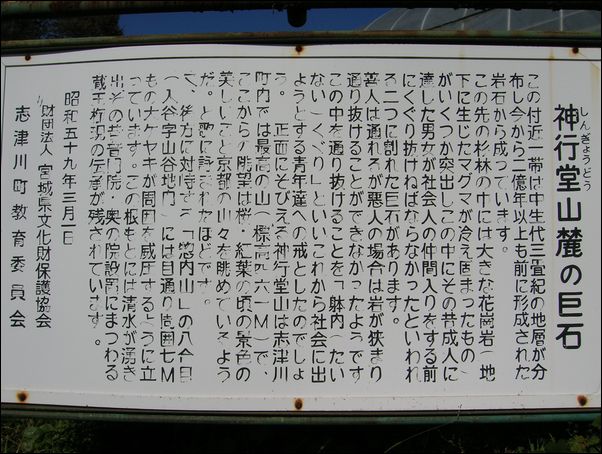 神行堂山麓の巨石
しんぎょうどう
この付近一帯は中生代三畳紀の地層が分
布し今から二億年以上も前に形成された
岩石から成っています。
この先の杉林の中には大きな花崗岩(地
下に生じたマグマが冷え固まったもの)
がいくつか突出しこの中にその昔成人に
達した男女が社会人の仲間入りをする前
にくぐり抜けねばならなかったといわれ
る二つに割れた巨石があります。
善人は通れるが悪人の場合は岩が狭まり
通り抜けることができなかったようです
この中を通り抜けることを「躰内(たい
ない)くぐり」といいこれから社会に出
ようとする青年達への戒としたのでしょ
う。 正面にそびえる神行堂山は志津川
町内では最高の山(標高四六一M)で、
ここからの眺望は桜・紅葉の頃の景色の
美しいこと京都の山々を眺めているよう
だ。と歌に詠まれたほどです。
又、後方に対峙する「惣内山」の八合目
(入谷字山谷地内)には目通り周囲七M
ものケヤキが周囲を威圧するように立
っています。この根もとには清水が湧き
出その昔羽門院・奥の院設置にまつわる
蔵王権現の伝承が残されています。
昭和五十九年三月一日
財団法人 宮城県文化財保護協会
志津川町教育委員会